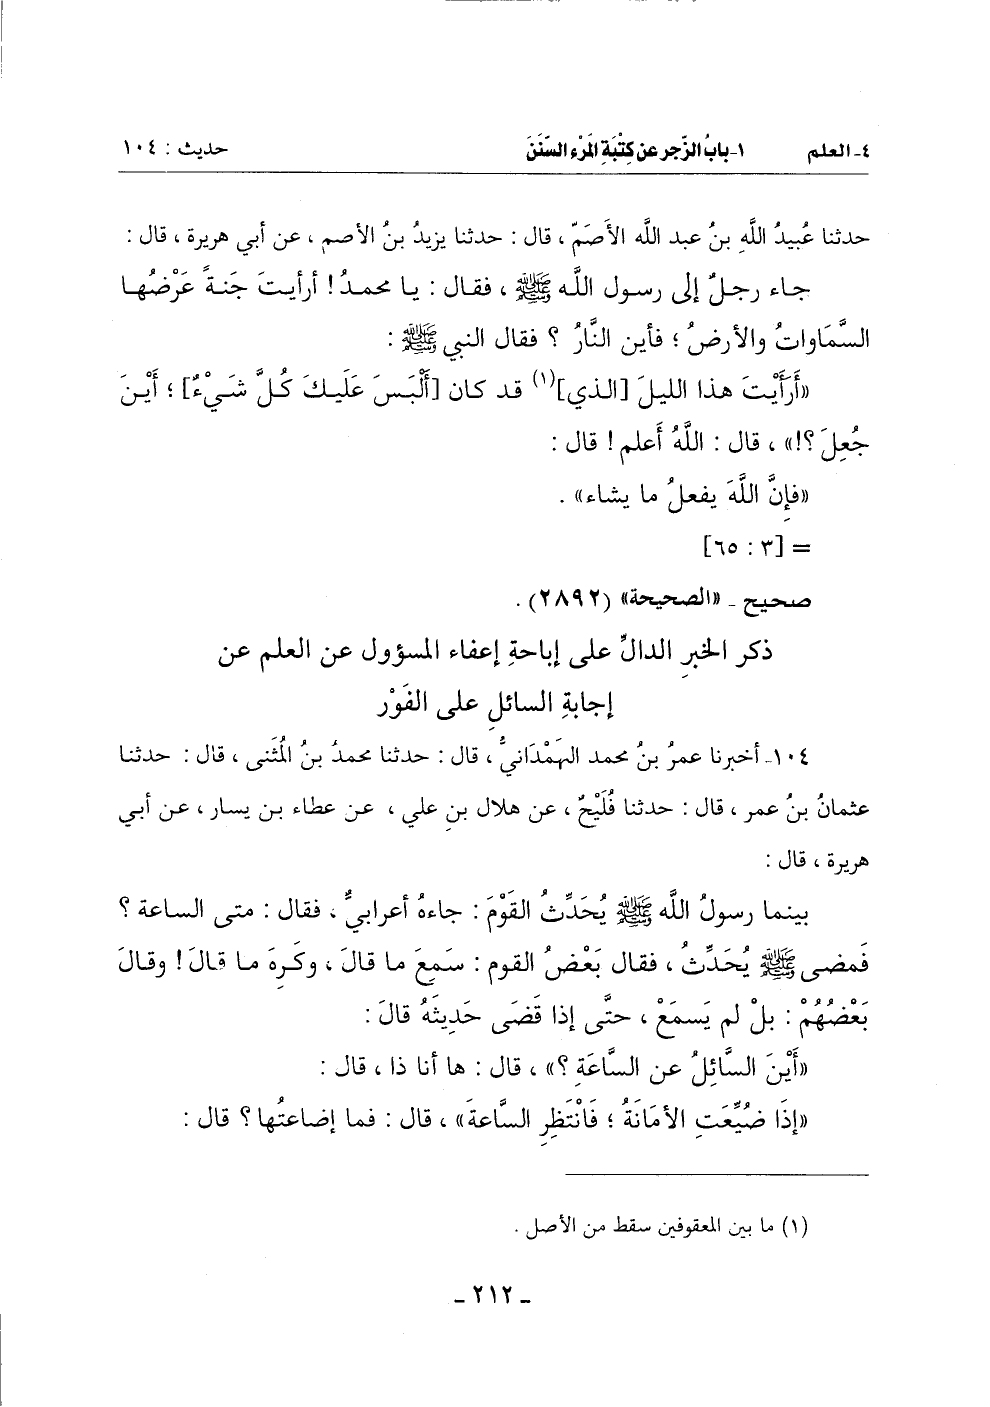 ٤- العلم ١- بابُ الزّجر عن كِتْبَةِ المَرْءِ السّنَنَ حديث : ١٠٤
حدثنا عُبيدُ اللَّهِ بنُ عبد اللَّه الأَصَمّ ، قال : حدثنا يزيدُ بنُ الأصم ، عن أبي هريرة ، قال :
جـاء رجـلٌ إلى رسـول اللَّـه ﷺ ، فقـال : يـا محمـدُ ! أرأيـتَ جَنـةً عَرْضُهـا
السَّمَاواتُ والأرضُ ؛ فأين النَّارُ ؟ فقال النبي ﷺ :
«أَرَأَيْـتَ هـذا الليـلَ [الذي](١) قـد كـان [أَلْبَـسَ عَلَيـكَ كُـلَّ شَـيْءٌ] ؛ أَيْـنَ
جُعِلَ ؟!» ، قال : اللَّهُ أَعلم ! قال :
«فإنَّ اللَّهَ يفعلُ ما يشاء» .
= [٣ : ٦٥]
صحيح ـ «الصحيحة» (٢٨٩٢) .
ذكر الخبرِ الدالِّ على إباحةِ إعفاء المسؤول عن العلم عن
إجابةِ السائلِ على الفَوْر
١٠٤ـ أخبرنا عمرُ بنُ محمد الهَمْدَانيُّ ، قال : حدثنا محمدُ بنُ المُثَنى ، قال : حدثنا
عثمانُ بنُ عمر ، قال : حدثنا فُلَيْحٌ ، عن هلال بنِ علي ، عن عطاء بن يسار ، عن أبي
هريرة ، قال :
بينما رسولُ اللَّه ﷺ يُحَدِّثُ القَوْمَ : جاءهُ أعرابيٌّ ، فقال : متى الساعة ؟
فَمضى ﷺ يُحَدِّثُ ، فقال بَعْضُ القوم : سَمِعَ ما قالَ ، وكَرِهَ ما قالَ ! وقالَ
بَعْضُهُمْ : بلْ لم يَسمَعْ ، حتَّى إذا قَضَى حَدِيثَهُ قالَ :
«أَيْنَ السَّائِلُ عن السَّاعَةِ ؟» ، قال : ها أنا ذا ، قال :
«إذَا ضُيِّعَتِ الأمَانَةُ ؛ فَانْتَظِرِ السَّاعةَ» ، قال : فما إضاعتُها ؟ قال :
(١) ما بين المعقوفين سقط من الأصل .
ـ ٢١٢ ـ